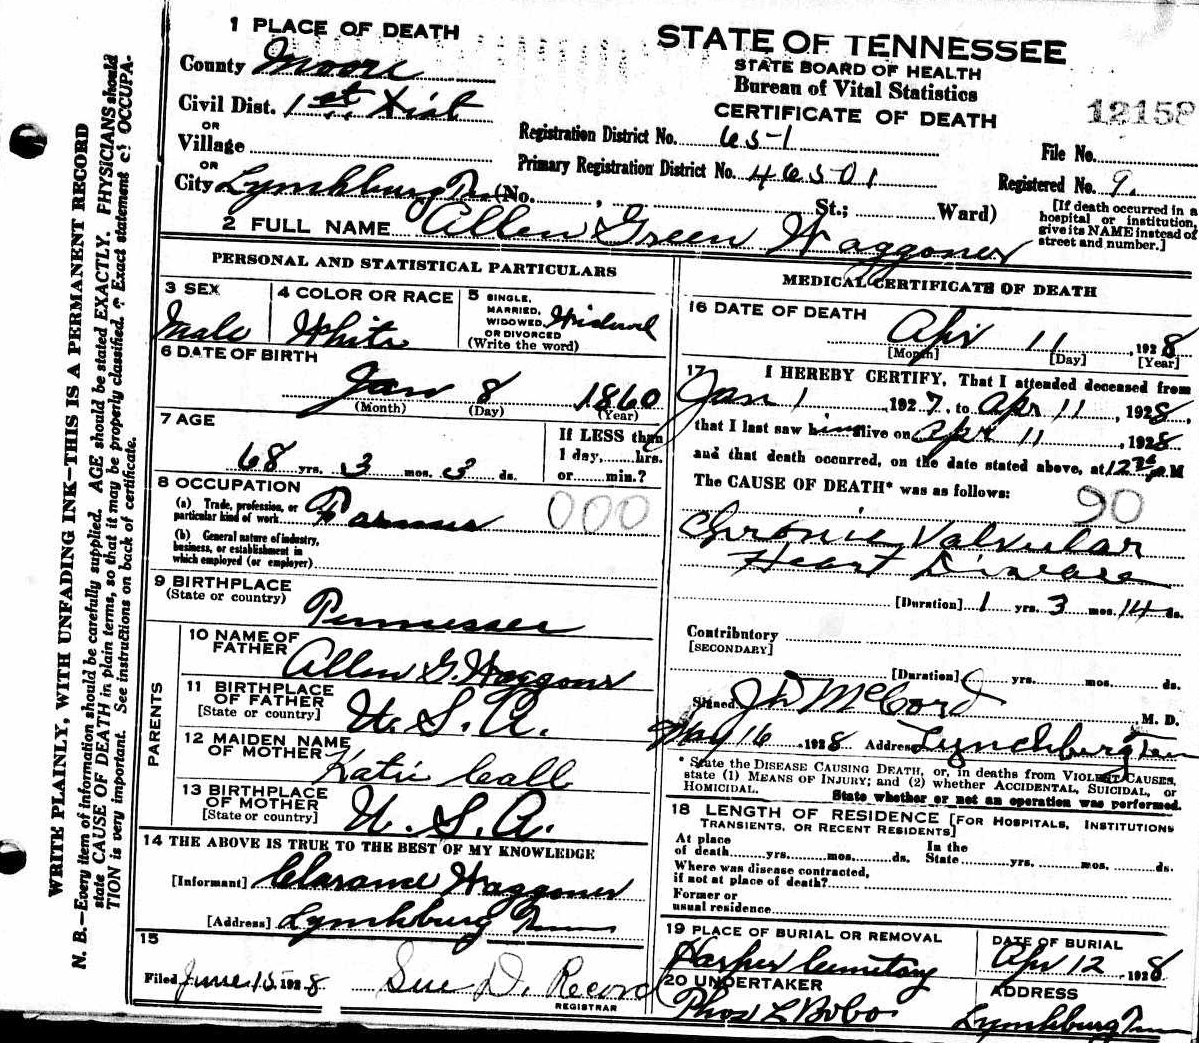 WRITE PLAINLY, WITH UNFADING INK—THIS IS A PERMANENT RECORD
N. B.—Every item of information should be carefully supplied. AGE should be stated EXACTLY. PHYSICIANS should
state CAUSE OF DEATH in plain terms, so that it may be properly classified. Exact statement of OCCUPA-
TION is very important. See instructions on back of certificate.
1 PLACE OF DEATH
County Moore
Civil Dist. 1st Dist
OR
Village
OR
City Lynchburg Tenn (No. , St.; Ward)
STATE OF TENNESSEE
STATE BOARD OF HEALTH
Bureau of Vital Statistics
CERTIFICATE OF DEATH
12158
Registration District No. 65-1
File No.
Primary Registration District No. 46501
Registered No. 9.
[If death occurred in a
hospital or institution,
give its NAME instead of
street and number.]
2 FULL NAME Allen Green Waggoner
PERSONAL AND STATISTICAL PARTICULARS
3 SEX
Male
4 COLOR OR RACE
White
5 SINGLE,
MARRIED,
WIDOWED,
OR DIVORCED
(Write the word)
Widowed
6 DATE OF BIRTH
Jan 8 1860
(Month) (Day) (Year)
7 AGE
68 yrs. 3 mos. 3 ds.
If LESS than
1 day, hrs.
or min.?
8 OCCUPATION
(a) Trade, profession, or
particular kind of work Farmer
000
(b) General nature of industry,
business, or establishment in
which employed (or employer)
9 BIRTHPLACE
(State or country)
Tennessee
PARENTS
10 NAME OF
FATHER Allen G. Waggoner
11 BIRTHPLACE
OF FATHER
[State or country] U. S. A.
12 MAIDEN NAME
OF MOTHER Katie Call
13 BIRTHPLACE
OF MOTHER
[State or country] U. S. A.
14 THE ABOVE IS TRUE TO THE BEST OF MY KNOWLEDGE
[Informant] Clarance Waggoner
[Address] Lynchburg Tenn
15
Filed June 15 1928 Sue D. Record
REGISTRAR
MEDICAL CERTIFICATE OF DEATH
16 DATE OF DEATH
Apr 11, 1928
[Month] [Day] [Year]
17 I HEREBY CERTIFY, That I attended deceased from
Jan 1, 1927, to Apr 11, 1928,
that I last saw him alive on Apr 11, 1928
and that death occurred, on the date stated above, at 12 P.M
The CAUSE OF DEATH* was as follows:
90
Chronic Valvular
Heart Disease
[Duration] 1 yrs. 3 mos. 14 ds.
Contributory
[SECONDARY]
[Duration] yrs. mos. ds.
Signed J D McCord M. D.
May 16, 1928 Address Lynchburg Tenn
* State the DISEASE CAUSING DEATH, or, in deaths from VIOLENT CAUSES,
state (1) MEANS OF INJURY; and (2) whether ACCIDENTAL, SUICIDAL, or
HOMICIDAL. State whether or not an operation was performed.
18 LENGTH OF RESIDENCE [FOR HOSPITALS, INSTITUTIONS
TRANSIENTS, OR RECENT RESIDENTS]
At place
of death yrs. mos. ds.
In the
State yrs. mos. ds.
Where was disease contracted,
if not at place of death?
Former or
usual residence
19 PLACE OF BURIAL OR REMOVAL
Harper Cemetery
DATE OF BURIAL
Apr 12 1928
20 UNDERTAKER
Thos L Bobo
ADDRESS
Lynchburg Tenn